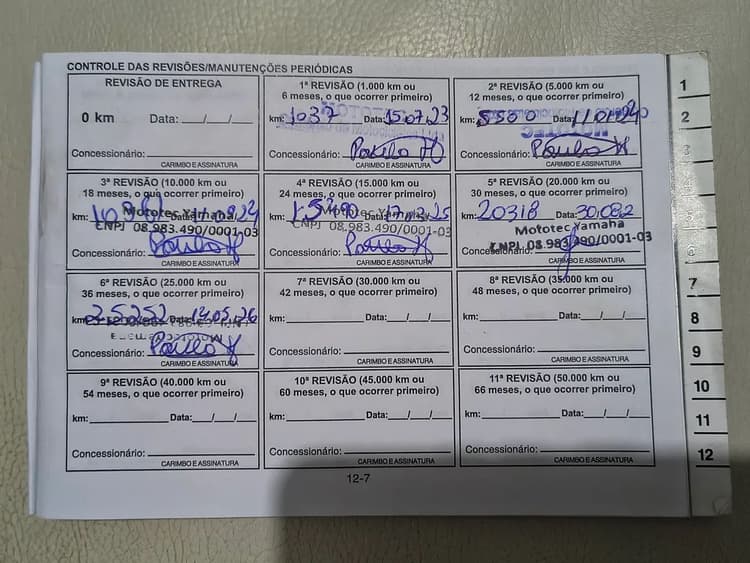 CONTROLE DAS REVISÕES/MANUTENÇÕES PERIÓDICAS
REVISÃO DE ENTREGA
0 km Data: ___/___/___
Concessionário:
CARIMBO E ASSINATURA
1ª REVISÃO (1.000 km ou
6 meses, o que ocorrer primeiro)
km: 1037 Data: 15.07.23
Concessionário: Paulo H
CARIMBO E ASSINATURA
2ª REVISÃO (5.000 km ou
12 meses, o que ocorrer primeiro)
km: 5500 Data: 11/01/24
MOTOTEC
Concessionário: Paulo H
CARIMBO E ASSINATURA
3ª REVISÃO (10.000 km ou
18 meses, o que ocorrer primeiro)
Mototec Yamaha
km: Data:
CNPJ 08.983.490/0001-03
Concessionário: Paulo H
CARIMBO E ASSINATURA
4ª REVISÃO (15.000 km ou
24 meses, o que ocorrer primeiro)
Mototec Yamaha
km: Data:
CNPJ 08.983.490/0001-03
Concessionário: Paulo H
CARIMBO E ASSINATURA
5ª REVISÃO (20.000 km ou
30 meses, o que ocorrer primeiro)
km: 20318 Data: 30.08.2
Mototec Yamaha
CNPJ 08.983.490/0001-03
Concessionário:
CARIMBO E ASSINATURA
6ª REVISÃO (25.000 km ou
36 meses, o que ocorrer primeiro)
km: 25252 Data: 14.05.26
Concessionário: Paulo H
CARIMBO E ASSINATURA
7ª REVISÃO (30.000 km ou
42 meses, o que ocorrer primeiro)
km: Data: ___/___/___
Concessionário:
CARIMBO E ASSINATURA
8ª REVISÃO (35.000 km ou
48 meses, o que ocorrer primeiro)
km: Data: ___/___/___
Concessionário:
CARIMBO E ASSINATURA
9ª REVISÃO (40.000 km ou
54 meses, o que ocorrer primeiro)
km: Data: ___/___/___
Concessionário:
CARIMBO E ASSINATURA
10ª REVISÃO (45.000 km ou
60 meses, o que ocorrer primeiro)
km: Data: ___/___/___
Concessionário:
CARIMBO E ASSINATURA
11ª REVISÃO (50.000 km ou
66 meses, o que ocorrer primeiro)
km: Data: ___/___/___
Concessionário:
CARIMBO E ASSINATURA
12-7
1
2
7
8
9
10
11
12